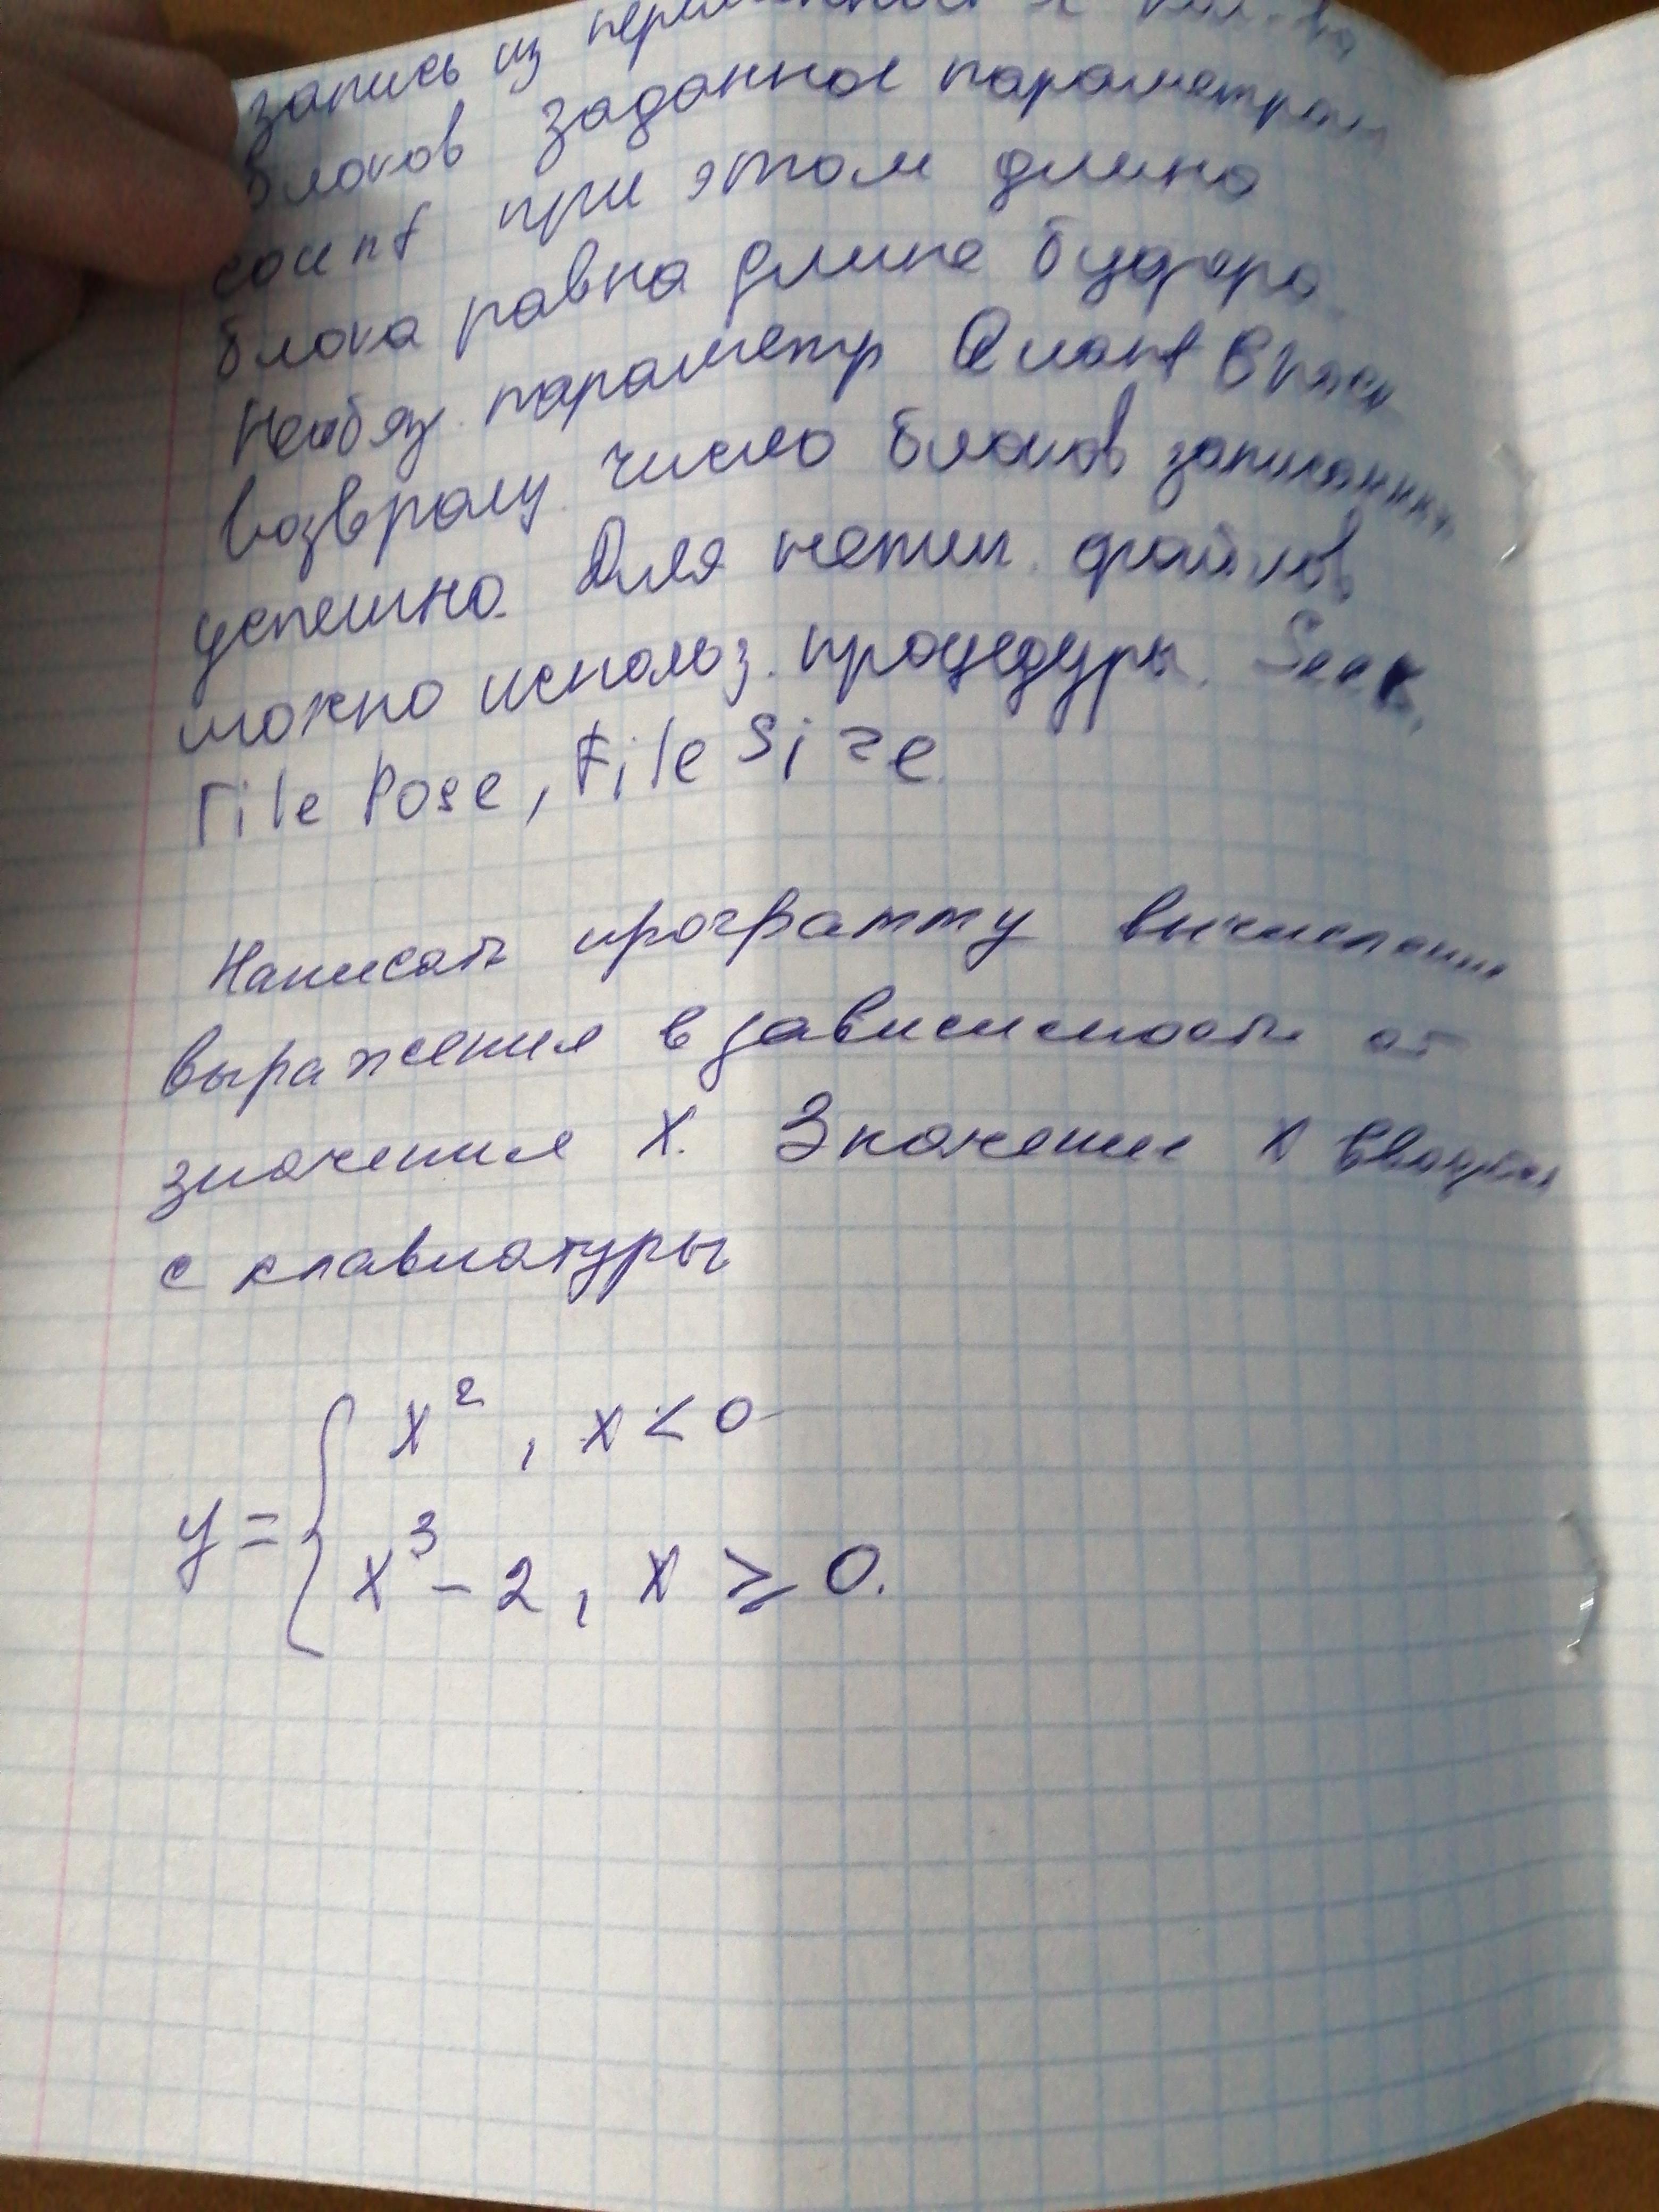 запись из переменной x кол-ва
блоков заданное параметром
count при этом длина
блока равна длине буфера.
Необяз. параметр Quant
возвращ. число блоков записанных
успешно. Для нетип. файлов
можно использ. процедуры. Seek,
File Pose, File Size.
Написать программу вычисления
выражения в зависимости от
значения X. Значение X вводится
с клавиатуры
y = { x², x < 0
x³ - 2, x ≥ 0.